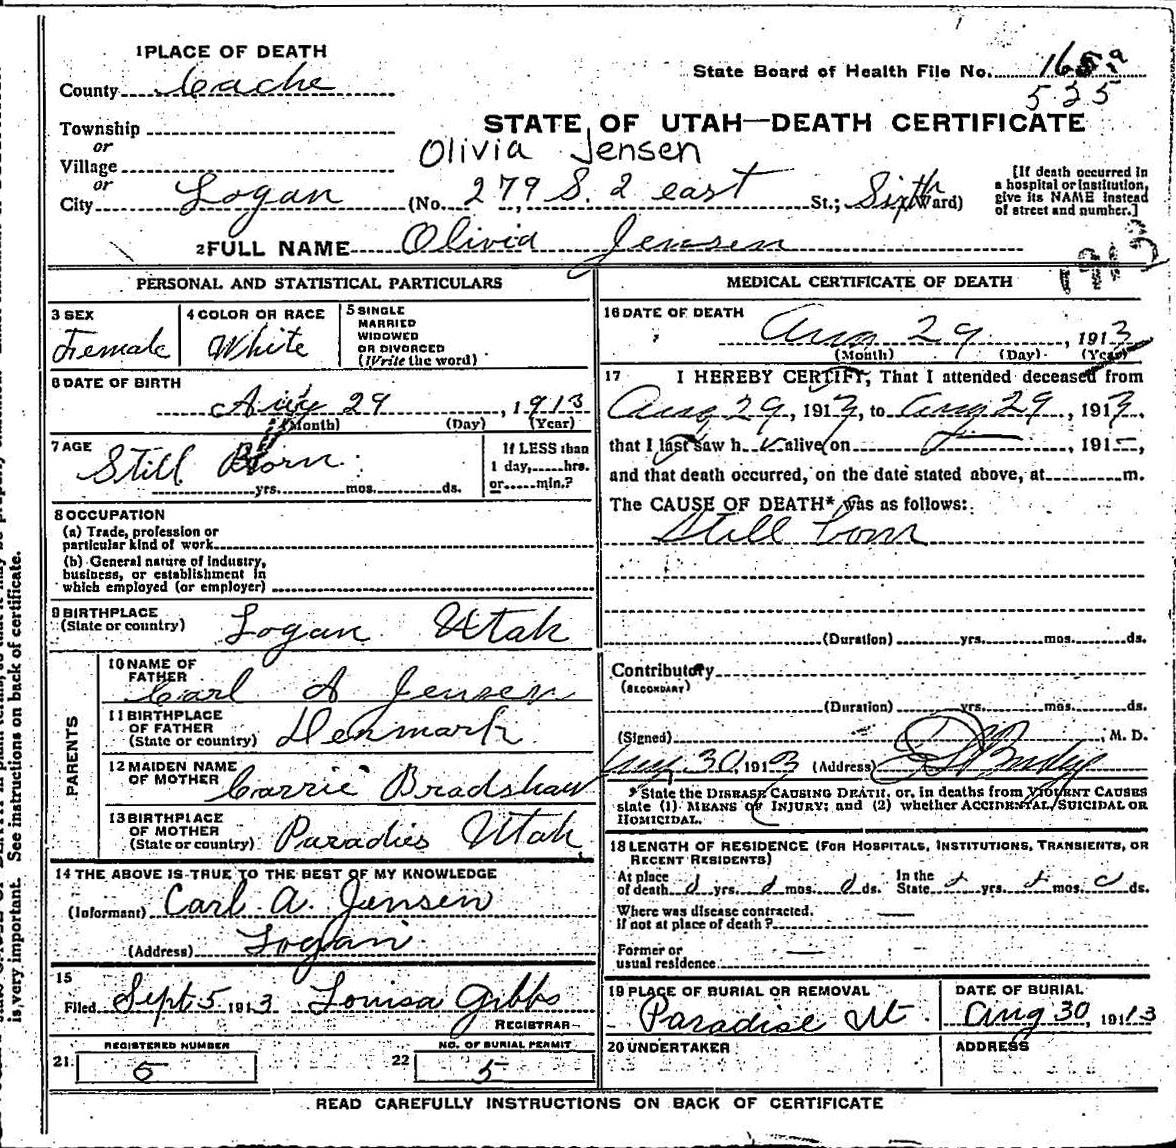 1 PLACE OF DEATH
County Cache
State Board of Health File No.
535
Township
STATE OF UTAH—DEATH CERTIFICATE
or
Olivia Jensen
Village
or
City Logan (No. 279 S. 2 east St.; Sixth Ward)
[If death occurred in
a hospital or institution,
give its NAME instead
of street and number.]
2 FULL NAME Olivia Jensen
1913
PERSONAL AND STATISTICAL PARTICULARS
3 SEX
Female
4 COLOR OR RACE
White
5 SINGLE
MARRIED
WIDOWED
OR DIVORCED
(Write the word)
6 DATE OF BIRTH
Aug 29, 1913
(Month) (Day) (Year)
7 AGE
Still Born
yrs. mos. ds.
If LESS than
1 day, hrs.
or min.?
8 OCCUPATION
(a) Trade, profession or
particular kind of work
(b) General nature of industry,
business, or establishment in
which employed (or employer)
9 BIRTHPLACE
(State or country) Logan Utah
PARENTS
10 NAME OF
FATHER
Carl A Jensen
11 BIRTHPLACE
OF FATHER
(State or country) Denmark
12 MAIDEN NAME
OF MOTHER Carrie Bradshaw
13 BIRTHPLACE
OF MOTHER
(State or country) Paradies Utah
14 THE ABOVE IS TRUE TO THE BEST OF MY KNOWLEDGE
(Informant) Carl A. Jensen
(Address) Logan
15
Filed Sept 5 1913 Louisa Gibbs
REGISTRAR
REGISTERED NUMBER
21
NO. OF BURIAL PERMIT
22 5
MEDICAL CERTIFICATE OF DEATH
16 DATE OF DEATH
Aug 29, 1913
(Month) (Day) (Year)
17 I HEREBY CERTIFY, That I attended deceased from
Aug 29, 1913, to Aug 29, 1913,
that I last saw h alive on , 191 ,
and that death occurred, on the date stated above, at m.
The CAUSE OF DEATH* was as follows:
Still born
(Duration) yrs. mos. ds.
Contributory
(SECONDARY)
(Duration) yrs. mos. ds.
(Signed) M. D.
Aug 30, 1913 (Address)
* State the DISEASE CAUSING DEATH, or, in deaths from VIOLENT CAUSES
state (1) MEANS OF INJURY; and (2) whether ACCIDENTAL, SUICIDAL OR
HOMICIDAL.
18 LENGTH OF RESIDENCE (FOR HOSPITALS, INSTITUTIONS, TRANSIENTS, OR
RECENT RESIDENTS)
At place In the
of death yrs. mos. ds. State yrs. mos. ds.
Where was disease contracted.
if not at place of death?
Former or
usual residence
19 PLACE OF BURIAL OR REMOVAL
Paradise Ut.
DATE OF BURIAL
Aug 30, 1913
20 UNDERTAKER
ADDRESS
READ CAREFULLY INSTRUCTIONS ON BACK OF CERTIFICATE
is very important. See instructions on back of certificate.